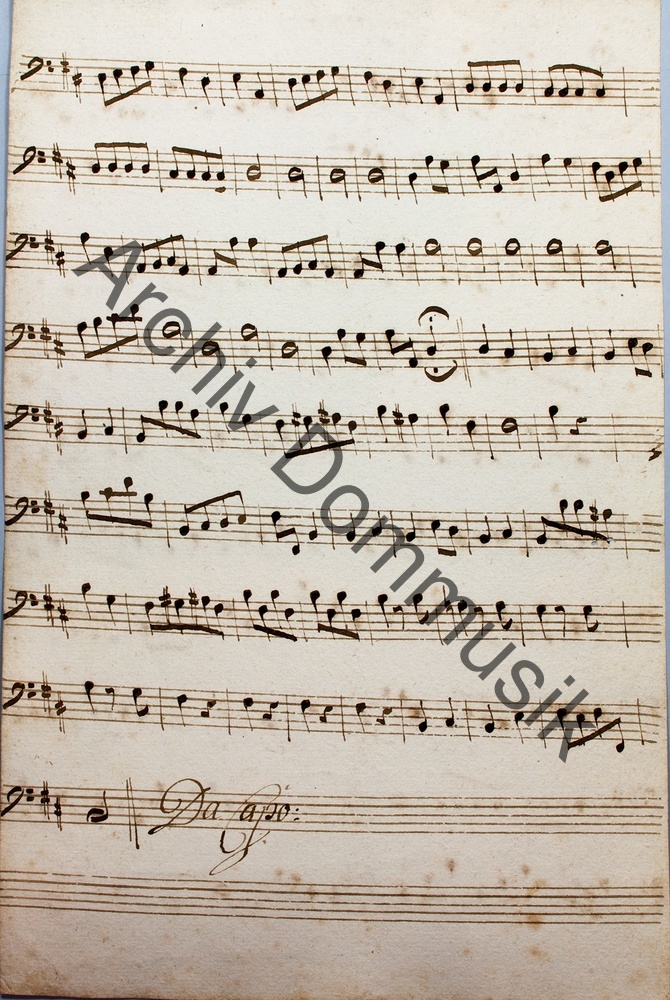 Archiv Dommusik
Da Capo: